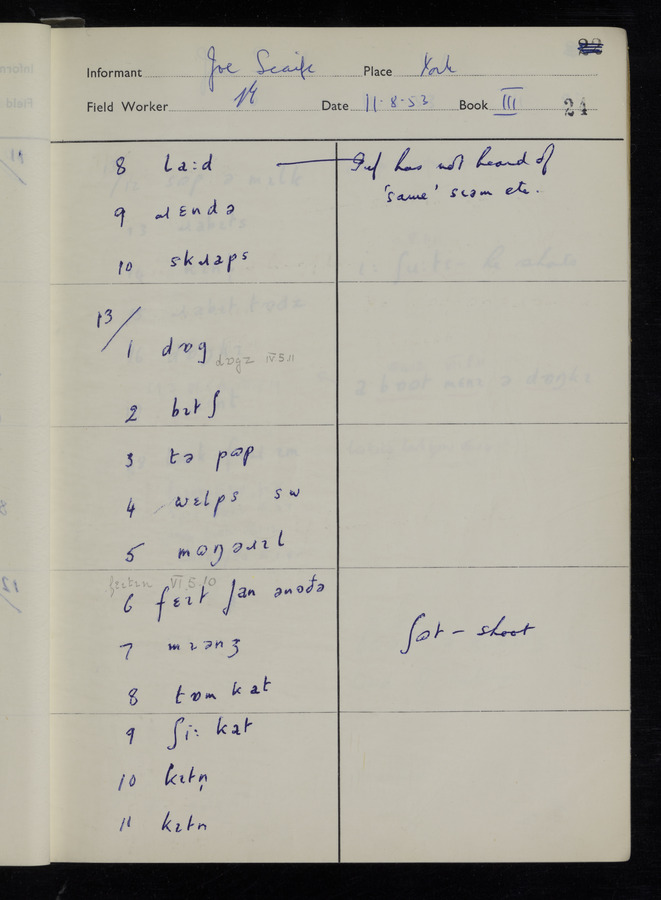 Informant Joe Scaife Place York
Field Worker Date 11·8·53 Book III 24
8 la:d — Inf has not heard of
'same' scam etc.
9 ɹɛndə
10 skɹaps
13/
1 dɒg dɒgz IV 5.11
2 bɪtʃ
3 tə pɷp
4 wɛlps s w
5 mɷŋgəɹɪl
VI.5.10
6 fɛɪt ʃan ənɒðə
7 mɪənʒ ʃɷt – shoot
8 tɒm kat
9 ʃi: kat
10 kɪtn̩
11 kɪtn